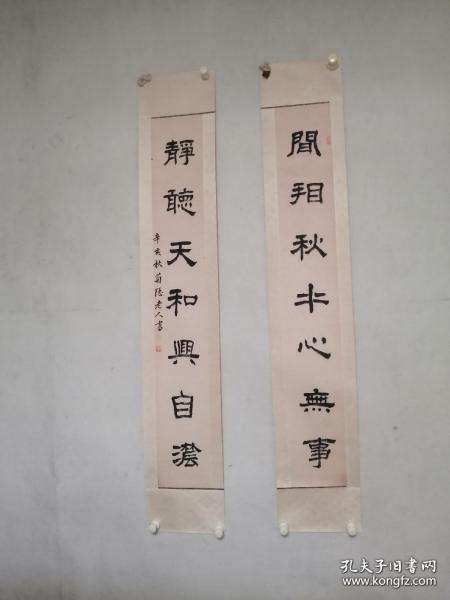 閒秋水心無事
靜聽天和興自濃
辛亥秋菊隱老人書
孔夫子旧书网
www.kongfz.com